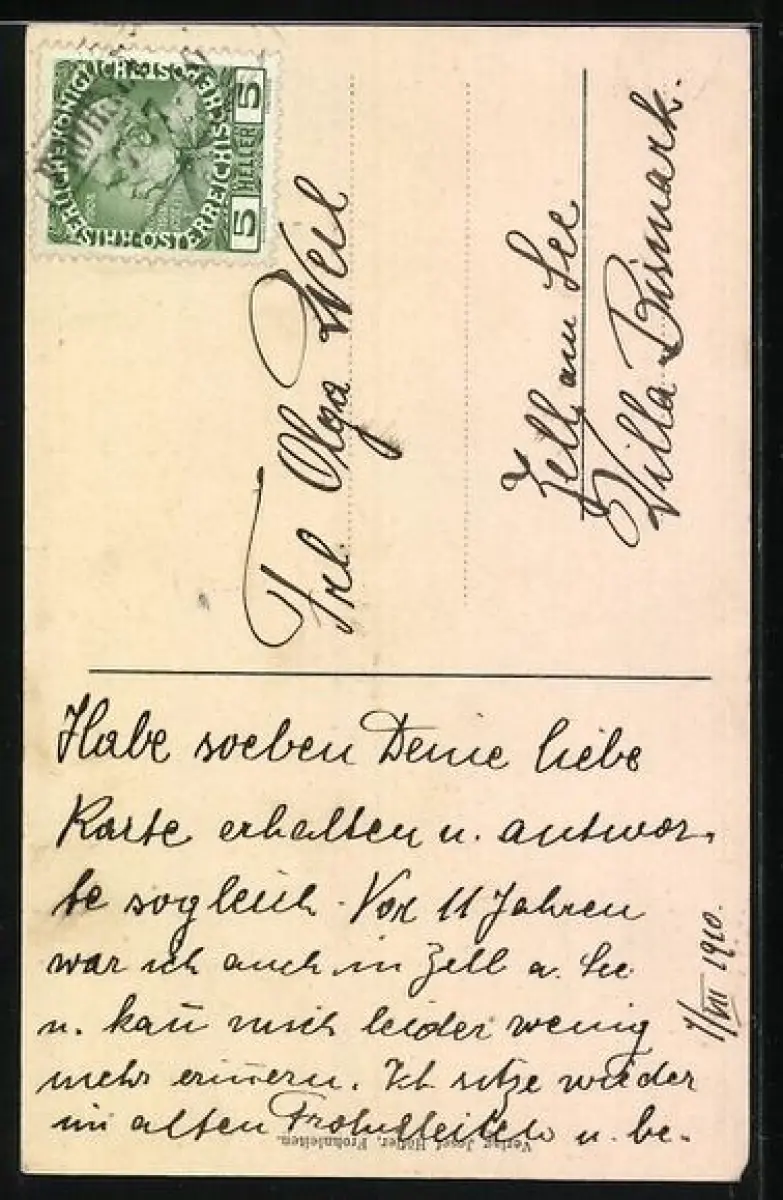 KAISERLICHE KÖNIGLICHE ÖSTERREICHISCHE POST
5 HELLER 5
Frl. Olga Weil
Zell am See
Villa Bismark.
Habe soeben Deine liebe
Karte erhalten u. antwor-
te sogleich. Vor 11 Jahren
war ich auch in Zell a. See
u. kañ mich leider wenig
mehr eriñern. Ich sitze wieder
im alten Frohnleiten u. be-
7/VII 1910.
Verlag Josef Höfler, Frohnleiten.